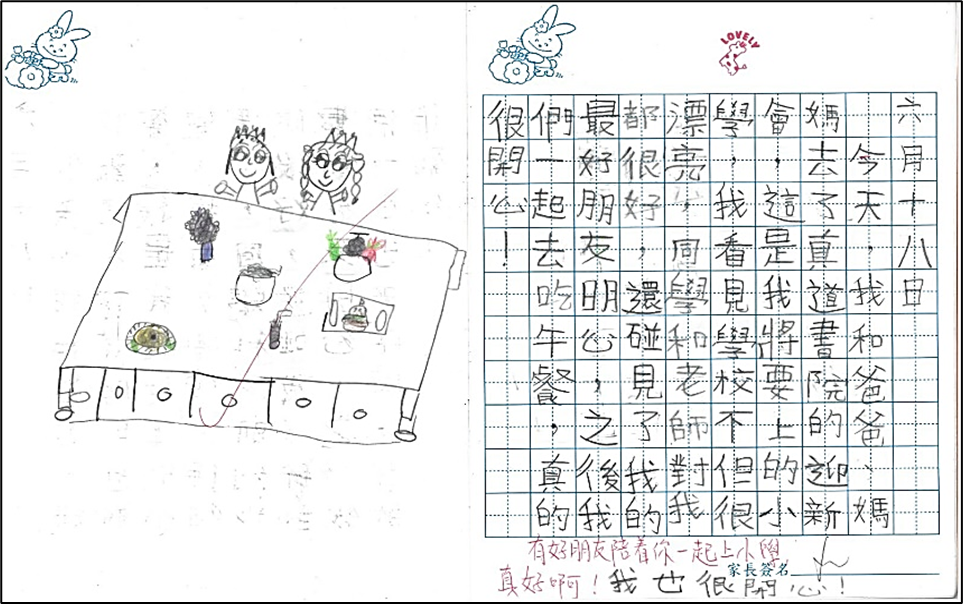 LOVELY
六月十八日
今天，我和爸爸、媽
媽去了真道書院的迎新
會，這是我將要上的小
學，我看見學校不但很
漂亮，同學和老師對我
都很好，還碰見了我的
最好朋友，明心，之後我
們一起去吃午餐，真的
很開心！
有好朋友陪着你一起上小學，
真好啊！我也很開心！
家長簽名